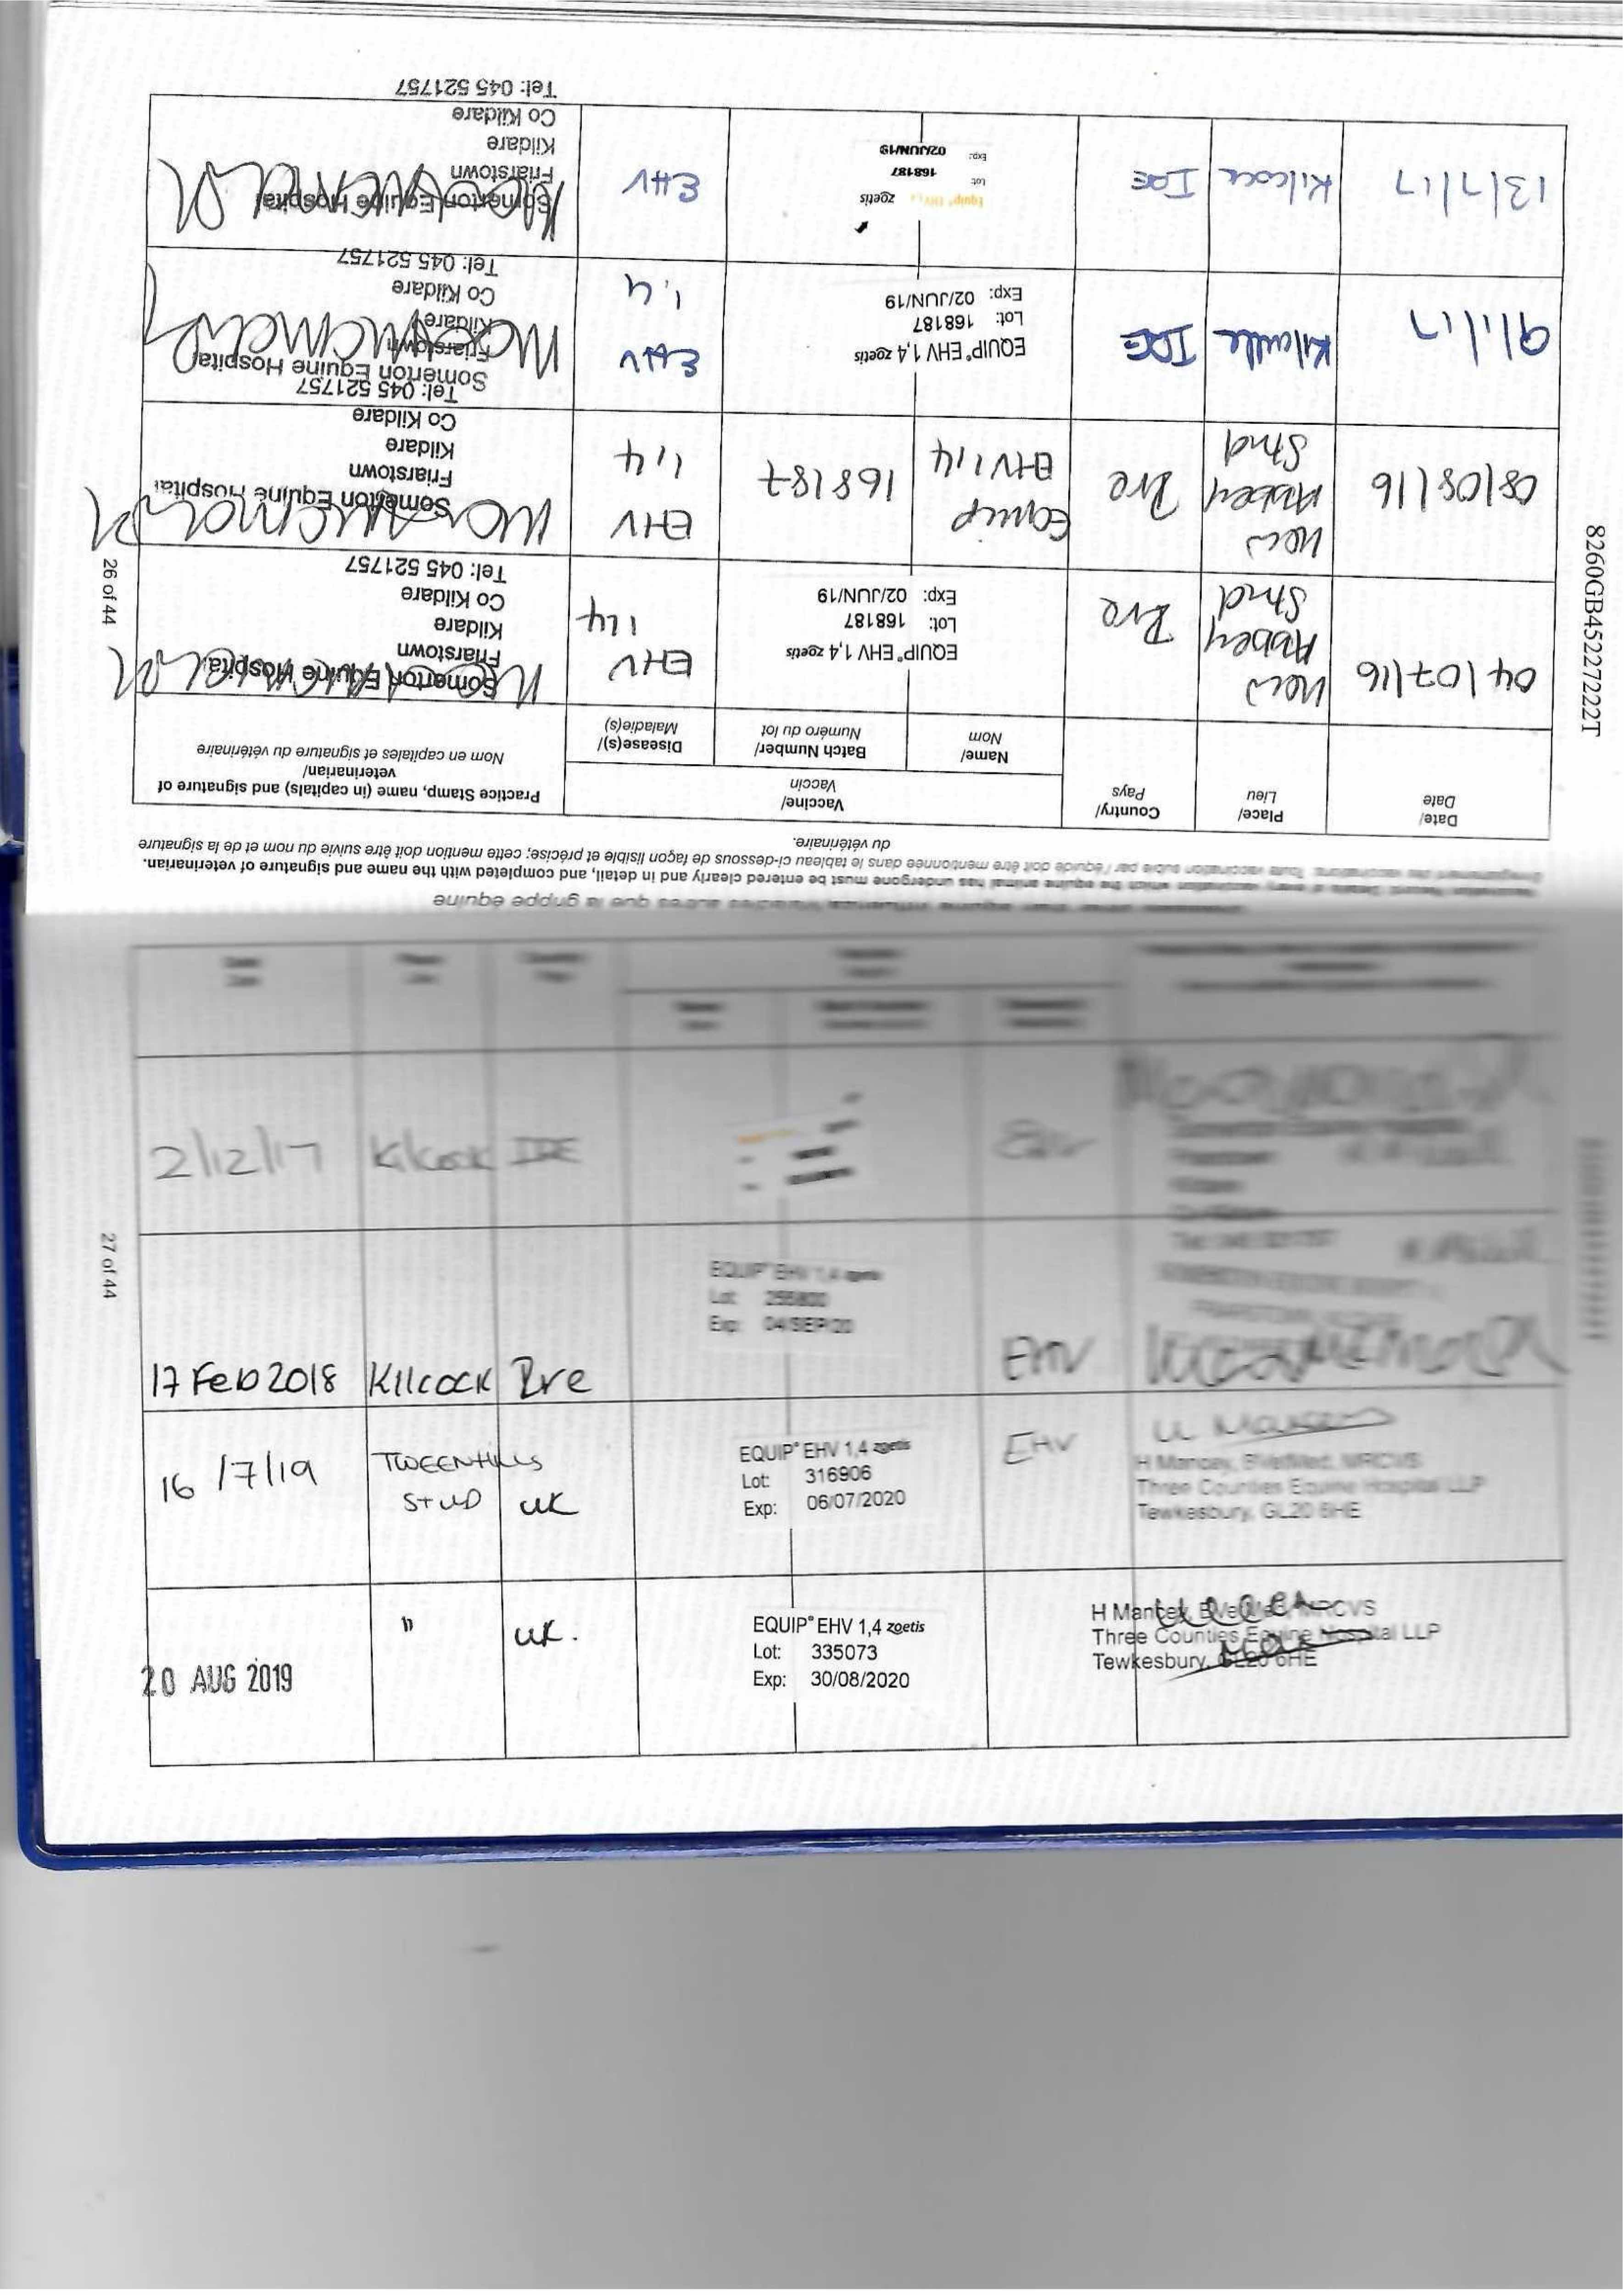 Diseases other than equine influenza/Maladies autres que la grippe equine
Vaccination Record. Details of every vaccination which the equine animal has undergone must be entered clearly and in detail, and completed with the name and signature of veterinarian.
Enregistrement des vaccinations. Toute vaccination subie par l'équidé doit être mentionnée dans le tableau ci-dessous de façon lisible et précise; cette mention doit être suivie du nom et de la signature
du vétérinaire.
Date/
Date
Place/
Lieu
Country/
Pays
Vaccine/
Vaccin
Name/
Nom
Batch Number/
Numéro du lot
Disease(s)/
Maladie(s)
Practice Stamp, name (in capitals) and signature of
veterinarian/
Nom en capitales et signature du vétérinaire
04/07/16
New
Abbey
Stud
Ire
EQUIP® EHV 1,4 zoetis
Lot: 168187
Exp: 02/JUN/19
EHV
1,4
Somerton Equine Hospital
Friarstown
Kildare
Co Kildare
Tel: 045 521757
08/08/16
New
Abbey
Stud
Ire
Equip
EHV 1,4
168187
EHV
1,4
Somerton Equine Hospital
Friarstown
Kildare
Co Kildare
Tel: 045 521757
9/1/17
IRE
EQUIP® EHV 1,4 zoetis
Lot: 168187
Exp: 02/JUN/19
EHV
1,4
Somerton Equine Hospital
Friarstown
Kildare
Co Kildare
Tel: 045 521757
13/7/17
Kilcock
IRE
Equip® EHV 1,4 zoetis
Lot: 168187
Exp: 02/JUN/19
EHV
Somerton Equine Hospital
Friarstown
Kildare
Co Kildare
Tel: 045 521757
26 of 44
8260GB45227222T
2/12/17
Kilcock
IRE
EHV
17 Feb 2018
Kilcock
Ire
EQUIP® EHV 1,4 zoetis
Lot: 255800
Exp: 04/SEP/20
EHV
16/7/19
TWEENHILLS
STUD
UK
EQUIP® EHV 1,4 zoetis
Lot: 316906
Exp: 06/07/2020
EHV
H Mancey, BVetMed, MRCVS
Three Counties Equine Hospital LLP
Tewkesbury, GL20 6HE
20 AUG 2019
"
UK.
EQUIP® EHV 1,4 zoetis
Lot: 335073
Exp: 30/08/2020
H Mancey, BVetMed, MRCVS
Three Counties Equine Hospital LLP
Tewkesbury, GL20 6HE
27 of 44